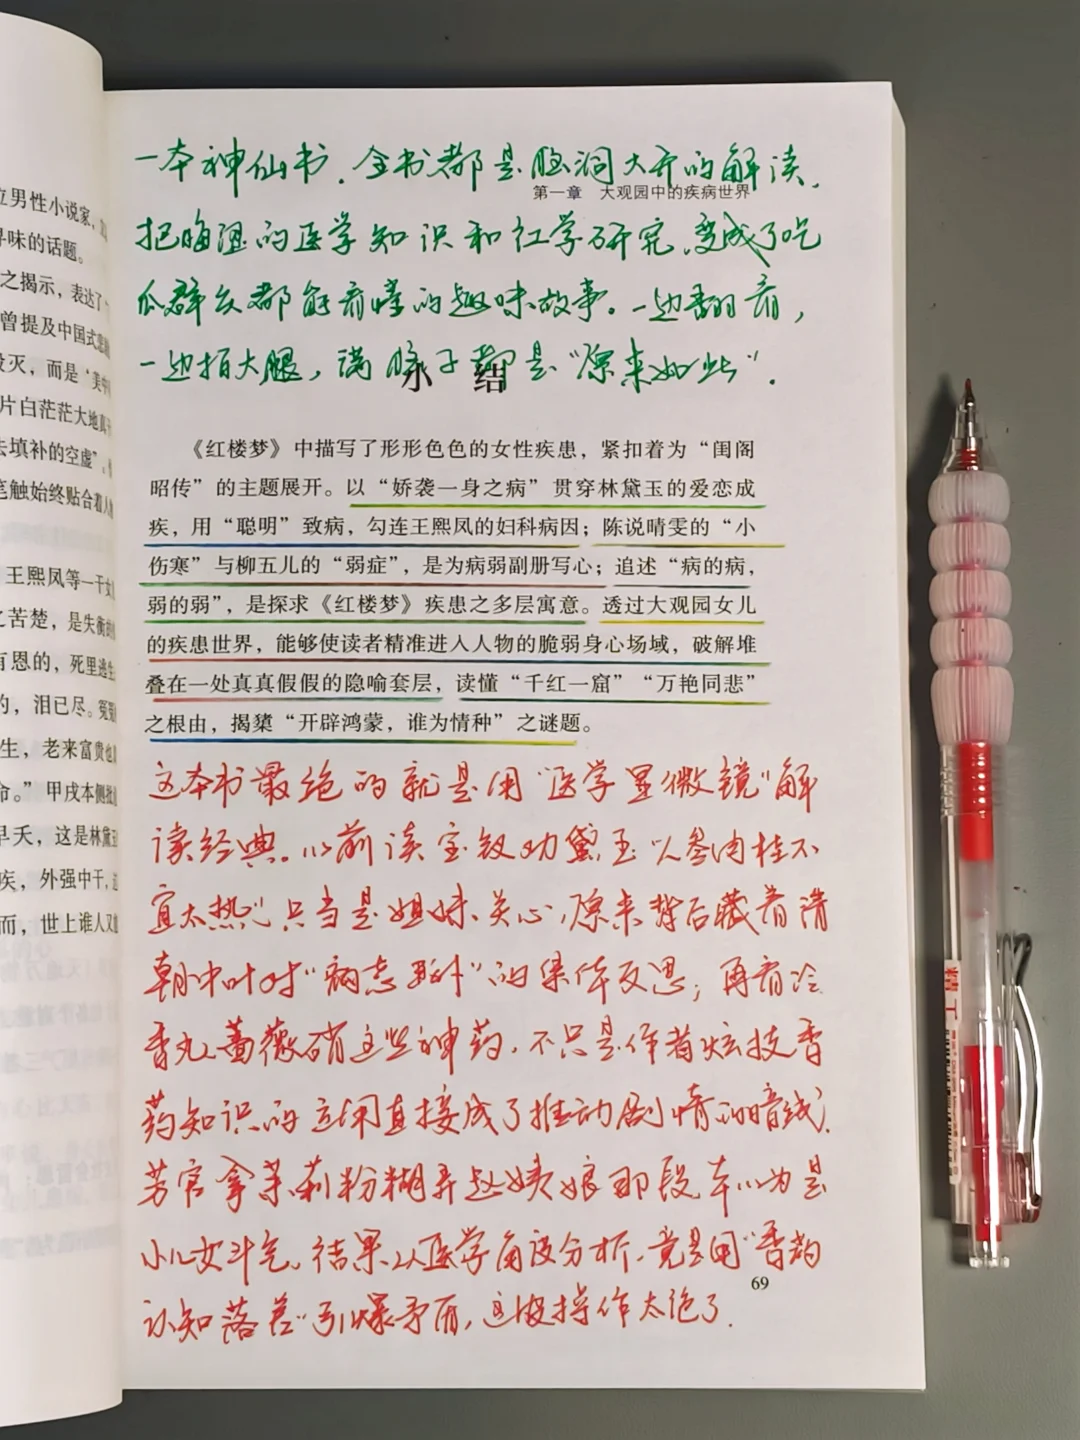 位男性小说家，
寻味的话题。
之揭示，表达了
曾提及中国式悲剧
毁灭，而是“美中
片白茫茫大地真
去填补的空虚”。
笔触始终贴合着人
王熙凤等一干女
之苦楚，是失衡的
有恩的，死里逃生
的，泪已尽。冤冤
生，老来富贵也
命。”甲戌本侧批
早夭，这是林黛玉
疾，外强中干，
而，世上谁人又
一本神仙书，全书都是脑洞大开的解读，
第一章 大观园中的疾病世界
把晦涩的医学知识和红学研究，变成了吃
瓜群众都能看懂的趣味故事。一边翻看，
一边拍大腿，满脑子都是“原来如此”。
小 结
《红楼梦》中描写了形形色色的女性疾患，紧扣着为“闺阁
昭传”的主题展开。以“娇袭一身之病”贯穿林黛玉的爱恋成
疾，用“聪明”致病，勾连王熙凤的妇科病因；陈说晴雯的“小
伤寒”与柳五儿的“弱症”，是为病弱副册写心；追述“病的病，
弱的弱”，是探求《红楼梦》疾患之多层寓意。透过大观园女儿
的疾患世界，能够使读者精准进入人物的脆弱身心场域，破解堆
叠在一处真真假假的隐喻套层，读懂“千红一窟”“万艳同悲”
之根由，揭橥“开辟鸿蒙，谁为情种”之谜题。
这本书最绝的就是用“医学显微镜”解
读经典。以前读宝钗劝黛玉“人参肉桂不
宜太热”，只当是姐妹关心，原来背后藏着清
朝中叶对“病态”的集体反思；再看冷
香丸、蔷薇硝这些神药，不只是作者炫技香
药知识的直接成了推动剧情的暗线，
芳官拿茉莉粉糊弄赵姨娘那段本以为是
小儿女斗气，结果以医学角度分析，竟是用“香药
认知落差”引爆矛盾，这波操作太绝了。
69